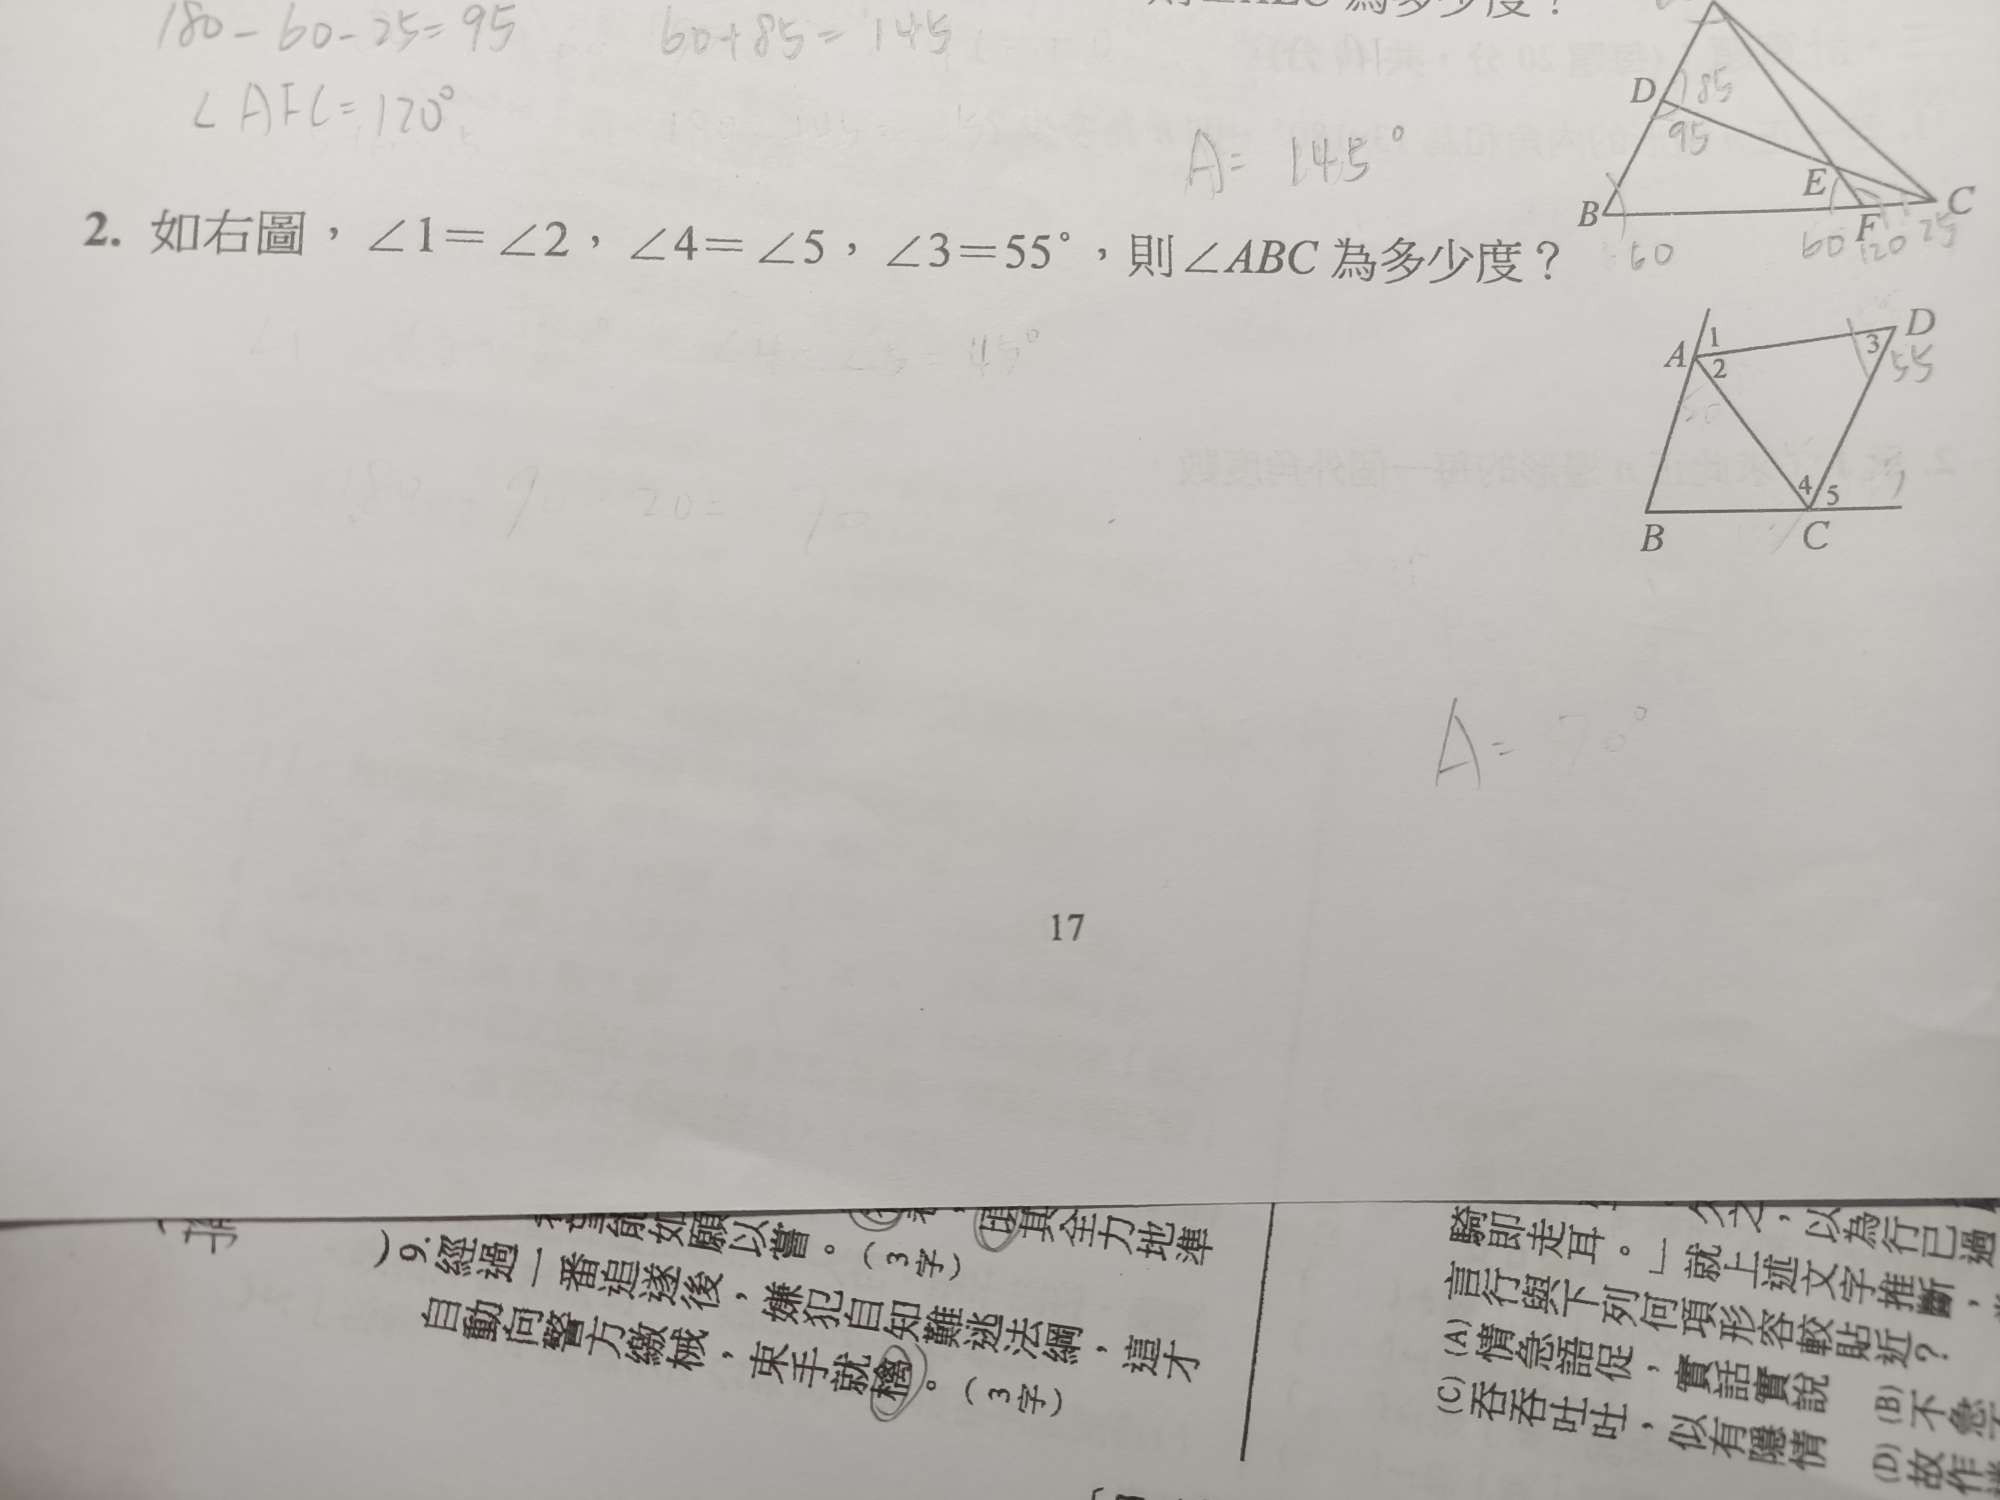 180-60-25=95
60+85=145
∠AFC=120°
A= 145°
D
85
95
E
B
C
F
60
60
120
25
2. 如右圖，∠1=∠2，∠4=∠5，∠3=55°，則∠ABC 為多少度？
A
1
2
3
D
55
4
5
B
C
∠4=∠5=45°
180-90-20=70
A= 70°
17
)9.經過一番追逐後，嫌犯自知難逃法網，這才
自動向警方繳械，束手就檎。（3字）
願以嘗。（3字）
其全力地準
久之，以為行已過
騎即走耳。」就上述文字推斷，
言行與下列何項形容較貼近？
(A)情急語促，實話實說
(B)不急
(C)吞吞吐吐，似有隱情
(D)故作